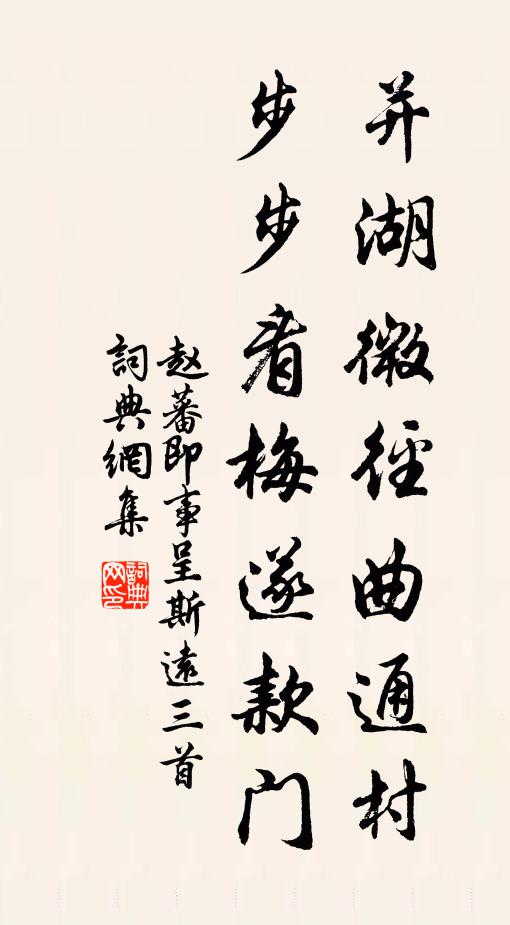 并湖微径曲通村
步步看梅遂款门
赵蕃即事呈斯遠三首
詞典網集
詞典网印